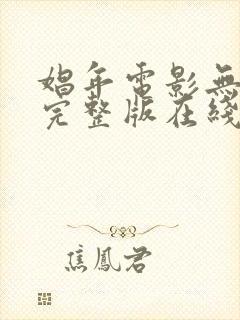 娼年電影無
完整版在綫
焦鳳君